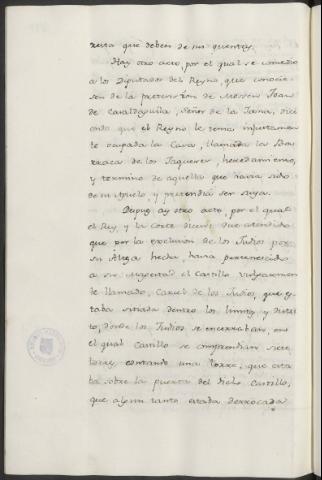 que deben de sus quentas.
Hay otro acto, por el qual se cometio
a los Diputados del Reyno, que conocie-
sen de la pretension de Mossen Joan
de, Señor de la Joana, dici-
endo que el Reyno le tenia injustamen-
te ocupada la Casa, llamada la
de los, heredamiento,
y termino de aquella que havia sido
de su Aguelo, y pretendia ser suya.
Despues ay otro acto, por el qual
el Rey, y la Corte dicen: Que atendido
que por la exclusion de los Judios por
su Alteza hecha havia pertenecido
a su Magestad el Castillo vulgarmen-
te llamado, Carcel de los Judios, que es-
taba sitiada dentro los limites, y distri-
to, donde los Judios se encerraban, en
el qual Castillo se comprendian siete
torres, contando una Torre, que esta-
ba sobre la puerta del dicho Castillo,
que algun tanto estaba derrocada